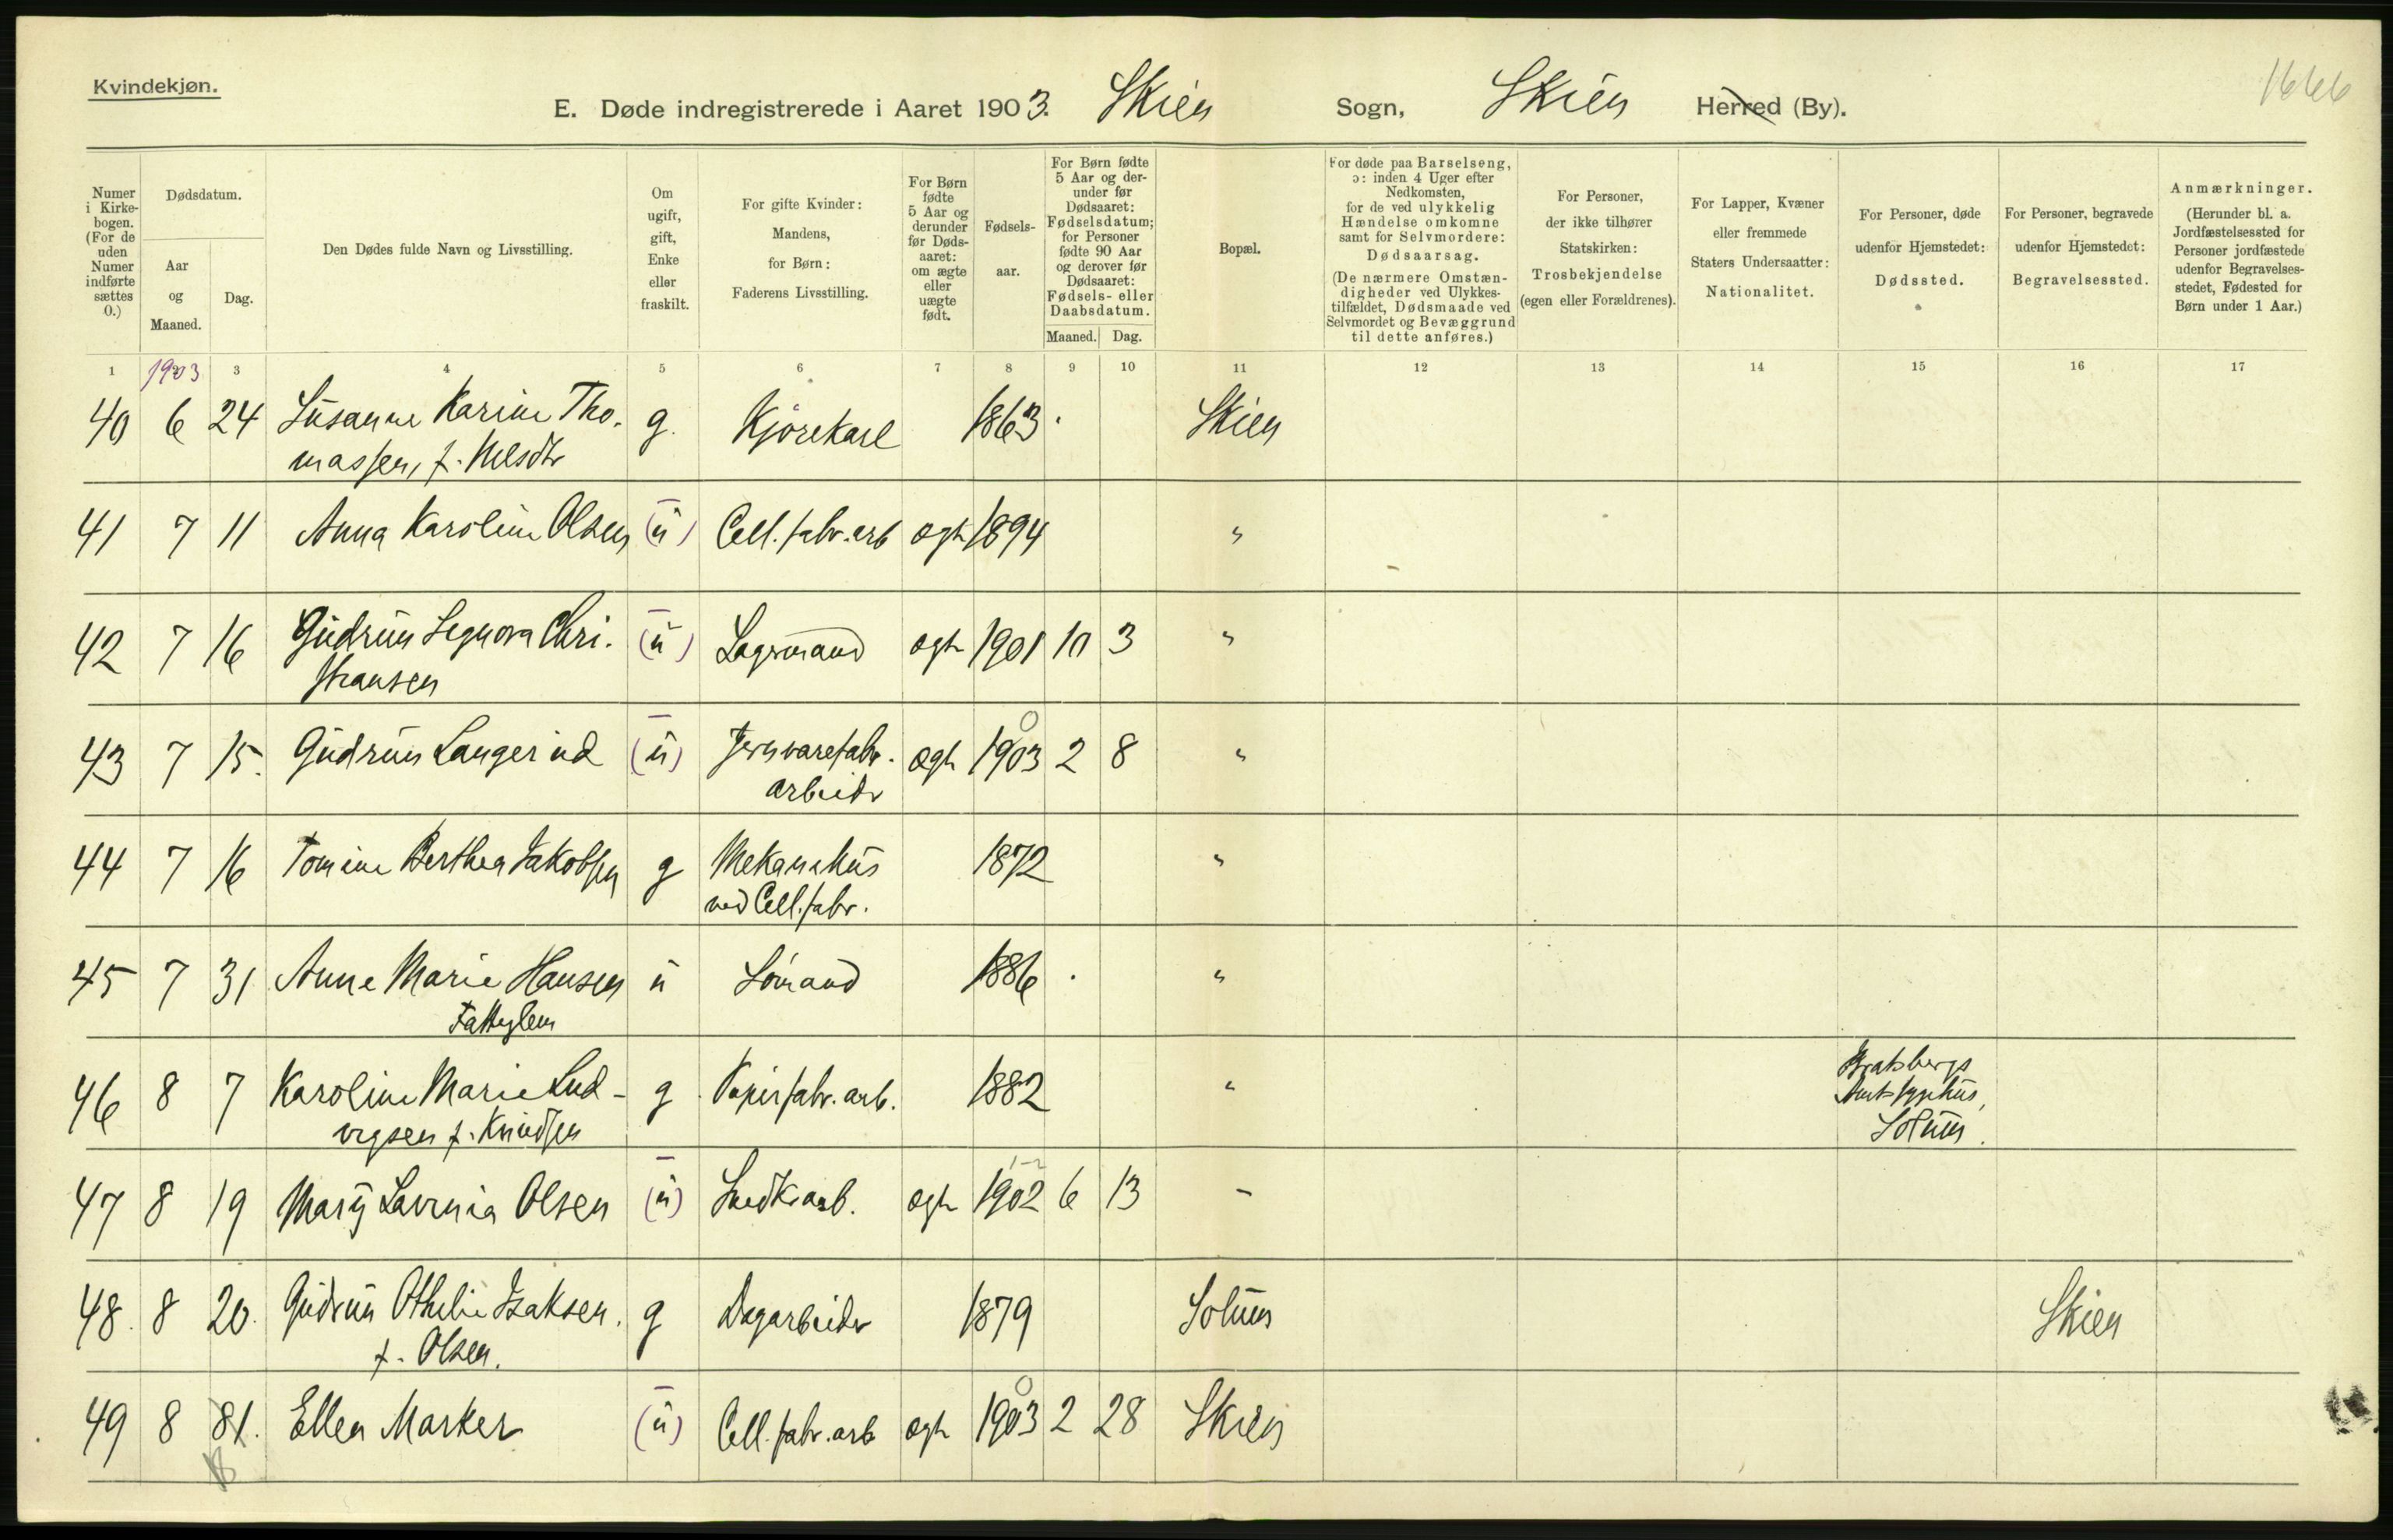 Kvindekjøn.
1666
E. Døde indregistrerede i Aaret 1903. Skien Sogn, Skien Herred (By).
Numer i Kirkebogen. (For de uden Numer indførte sættes 0.)
Dødsdatum.
Aar og Maaned.
Dag.
Den Dødes fulde Navn og Livsstilling.
Om ugift, gift, Enke eller fraskilt.
For gifte Kvinder: Mandens, for Børn: Faderens Livsstilling.
For Børn fødte 5 Aar og derunder før Dødsaaret: om ægte eller uægte født.
Fødselsaar.
For Børn fødte 5 Aar og derunder før Dødsaaret: Fødselsdatum; for Personer fødte 90 Aar og derover før Dødsaaret: Fødsels- eller Daabsdatum.
Maaned. Dag.
Bopæl.
For døde paa Barselseng, ɔ: inden 4 Uger efter Nedkomsten, for de ved ulykkelig Hændelse omkomne samt for Selvmordere: Dødsaarsag. (De nærmere Omstændigheder ved Ulykkestilfældet, Dødsmaade ved Selvmordet og Bevæggrund til dette anføres.)
For Personer, der ikke tilhører Statskirken: Trosbekjendelse (egen eller Forældrenes).
For Lapper, Kvæner eller fremmede Staters Undersaatter: Nationalitet.
For Personer, døde udenfor Hjemstedet: Dødssted.
For Personer, begravede udenfor Hjemstedet: Begravelsessted.
Anmærkninger. (Herunder bl. a. Jordfæstelsessted for Personer jordfæstede udenfor Begravelsesstedet, Fødested for Børn under 1 Aar.)
1 1903 3 4 5 6 7 8 9 10 11 12 13 14 15 16 17
40 6 24 Susanne Karine Tho- g. Kjørekarl 1863 Skien
massen, f. Nilsdtr
41 7 11 Anna Karoline Olsen (u) Cell. fabr. arb ægte 1894 "
42 7 16 Gudrun Legnora Chri- (u) Lagermand ægte 1901 10 3 "
stiansen
43 7 15. Gudrun Langerud (u) Jernvarefabr. ægte 1903 2 8 "
arbeider
44 7 16 Tomine Berthea Jakobsen g Mekanikus 1872 "
ved Cell. fabr.
45 7 31 Anne Marie Hansen u Sømand 1886 "
Fattiglem
46 8 7 Karoline Marie Lud- g Papirfabr. arb. 1882 " Bratsbergs
vigsen f. Knudsen Amtssygehus,
Solum.
47 8 19 Mary Lavinia Olsen (u) ægte 1902 6 13 -
48. 8 20. Gudrun Othilie Isaksen. g Dagarbeider 1879 Solum Skien
f. Olsen.
49 8 31. Ellen Marker (u) Cell. fabr. arb ægte 1903 2 28 Skien